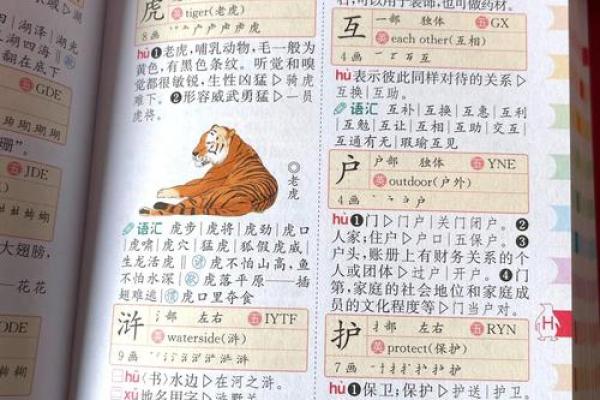 湖泽|湖光
湖四海|
翻在底下
五 GDE
珊”。
五 JDE
大翅膀,
花花
DDE
虎
英 tiger(老虎)
8画
hǔ❶老虎,哺乳动物,毛一般为
黄色,有黑色条纹。听觉和嗅
觉都很敏锐,生性凶猛▷骑虎
难下。❷形容威武勇猛▷一员
虎将。
◎老虎
语汇 虎步|虎将|虎劲|虎口
|虎啸|虎穴|猛虎|狐假虎威|
生龙活虎‖谚虎不怕山高,鱼
不怕水深‖歇虎落平原——插
翅难逃‖惯虎口里夺食
浒 氵部 左右 五 IYTF
英 waterside(浒)
9画
hǔ〈书〉水边▷在河之浒。
xǔ地名用字▷浒墅关
可以用于装饰,也可做药材。
互 一部 独体 五 GX
英 each other(互相)
4画
hù表示彼此同样对待的关系▷
互换|互助。
语汇 互补|互换|互惠|互利
|互勉|互让|互相|互助|交互|
互通有无|瑕瑜互见
户 户部 独体 五 YNE
英 outdoor(户外)
4画
hù❶门▷门户|关门闭户。❷
人家;住户▷户口|五保户。❸
户头,账册上有财务关系的个
人或团体▷过户|开户。❹门
第,家庭的社会地位和家庭成
员的文化程度等▷门当户对。
H
护 扌部 左右 五 RYN
英 protect(保护)
7画
hù❶保卫;保护▷护送|护卫